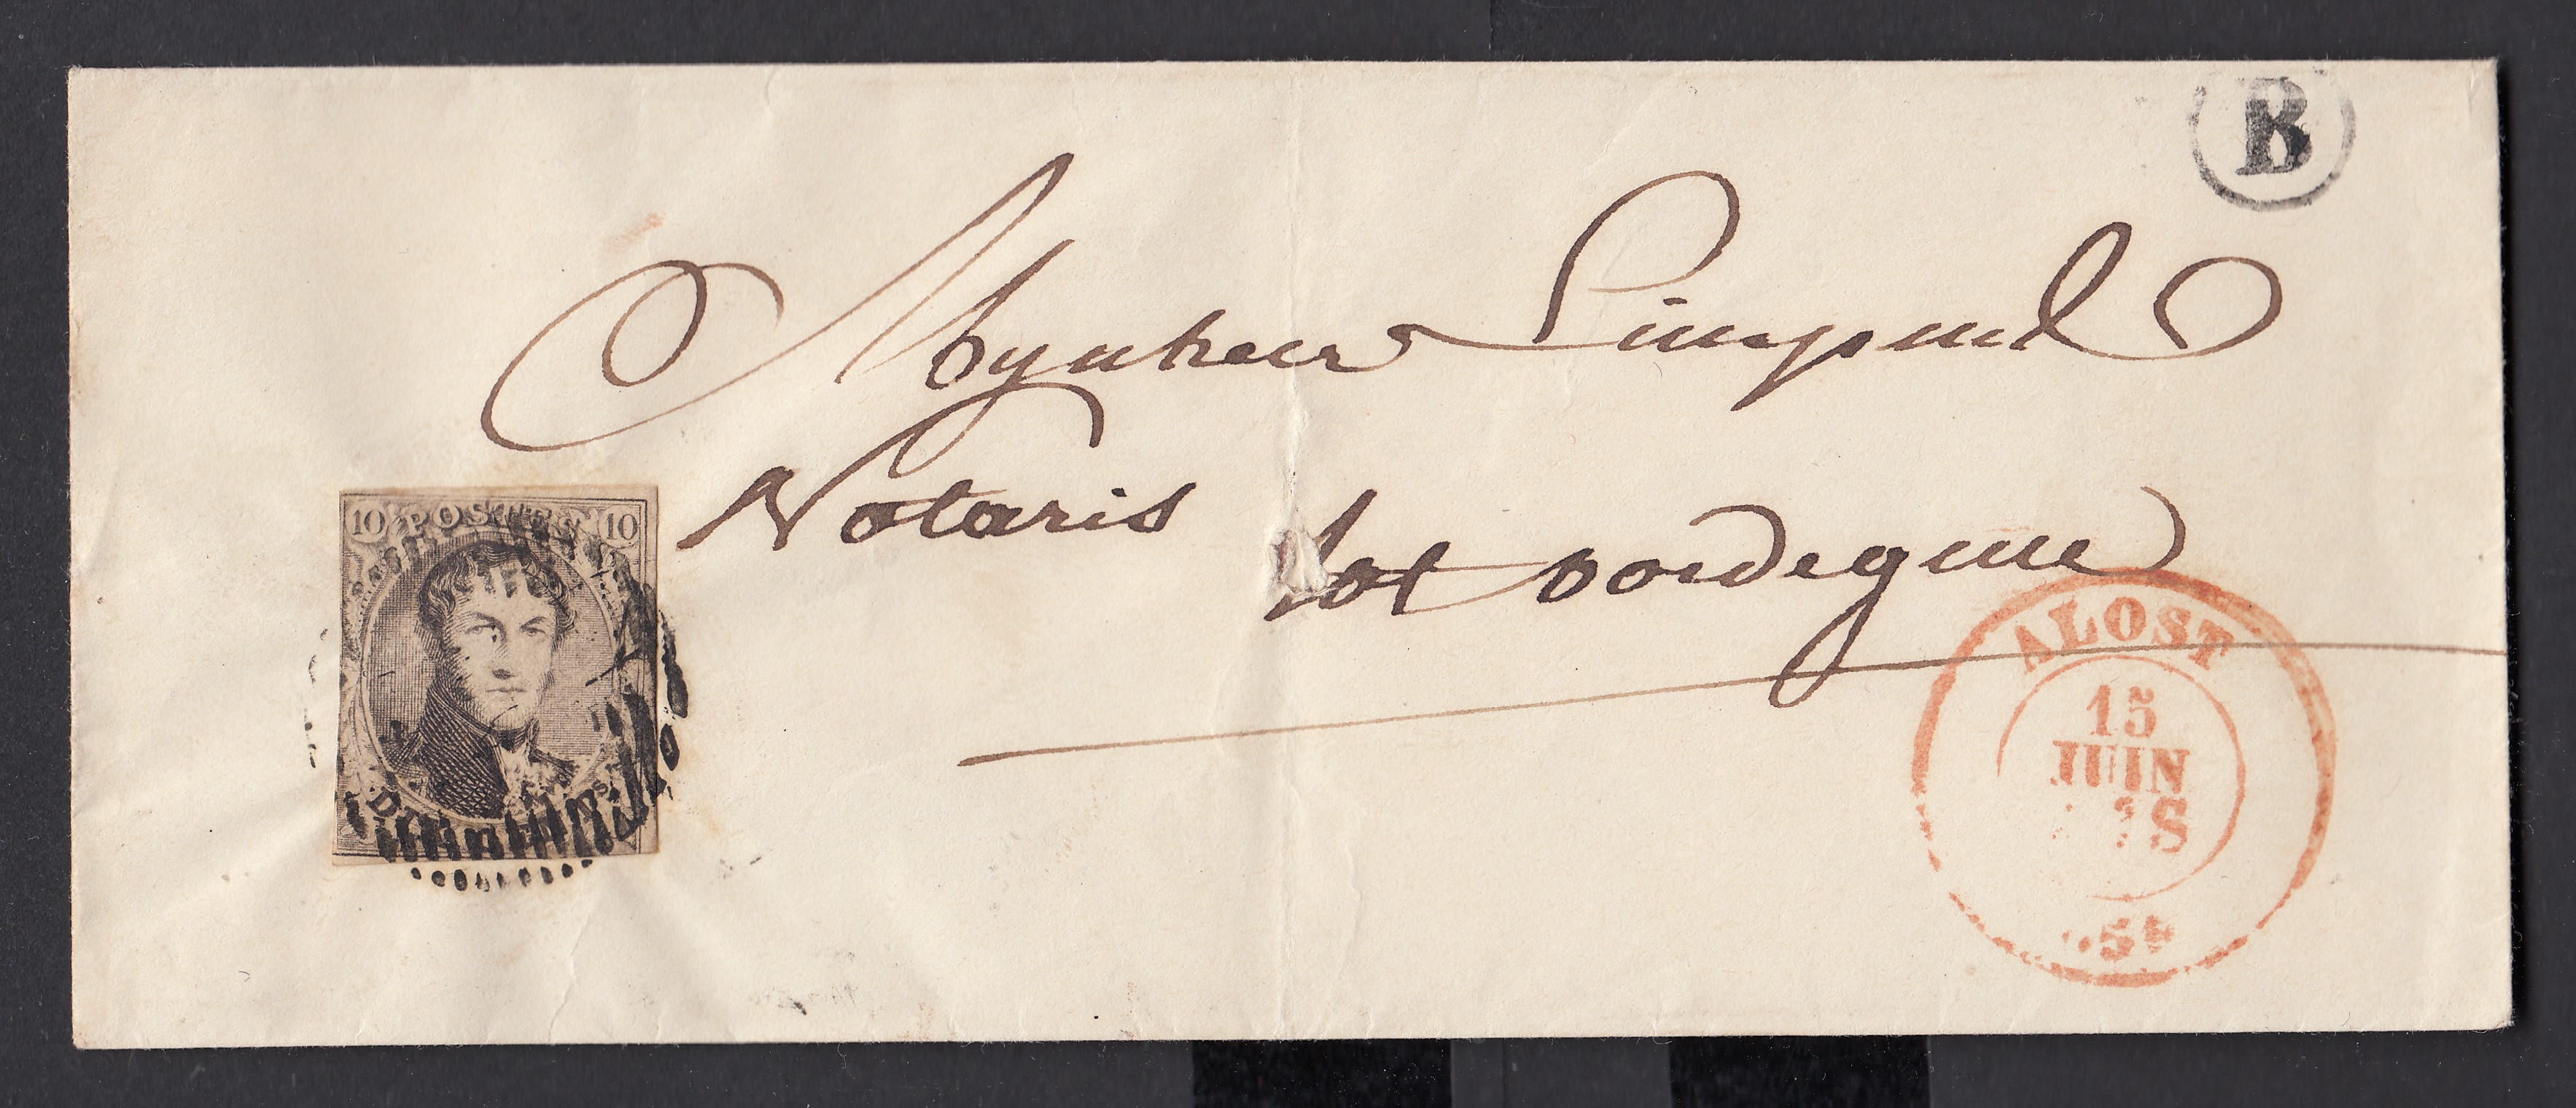 B
Mynheer Limpens
Notaris
tot oordegem
10 POSTES 10
ALOST
15
JUIN
S
54